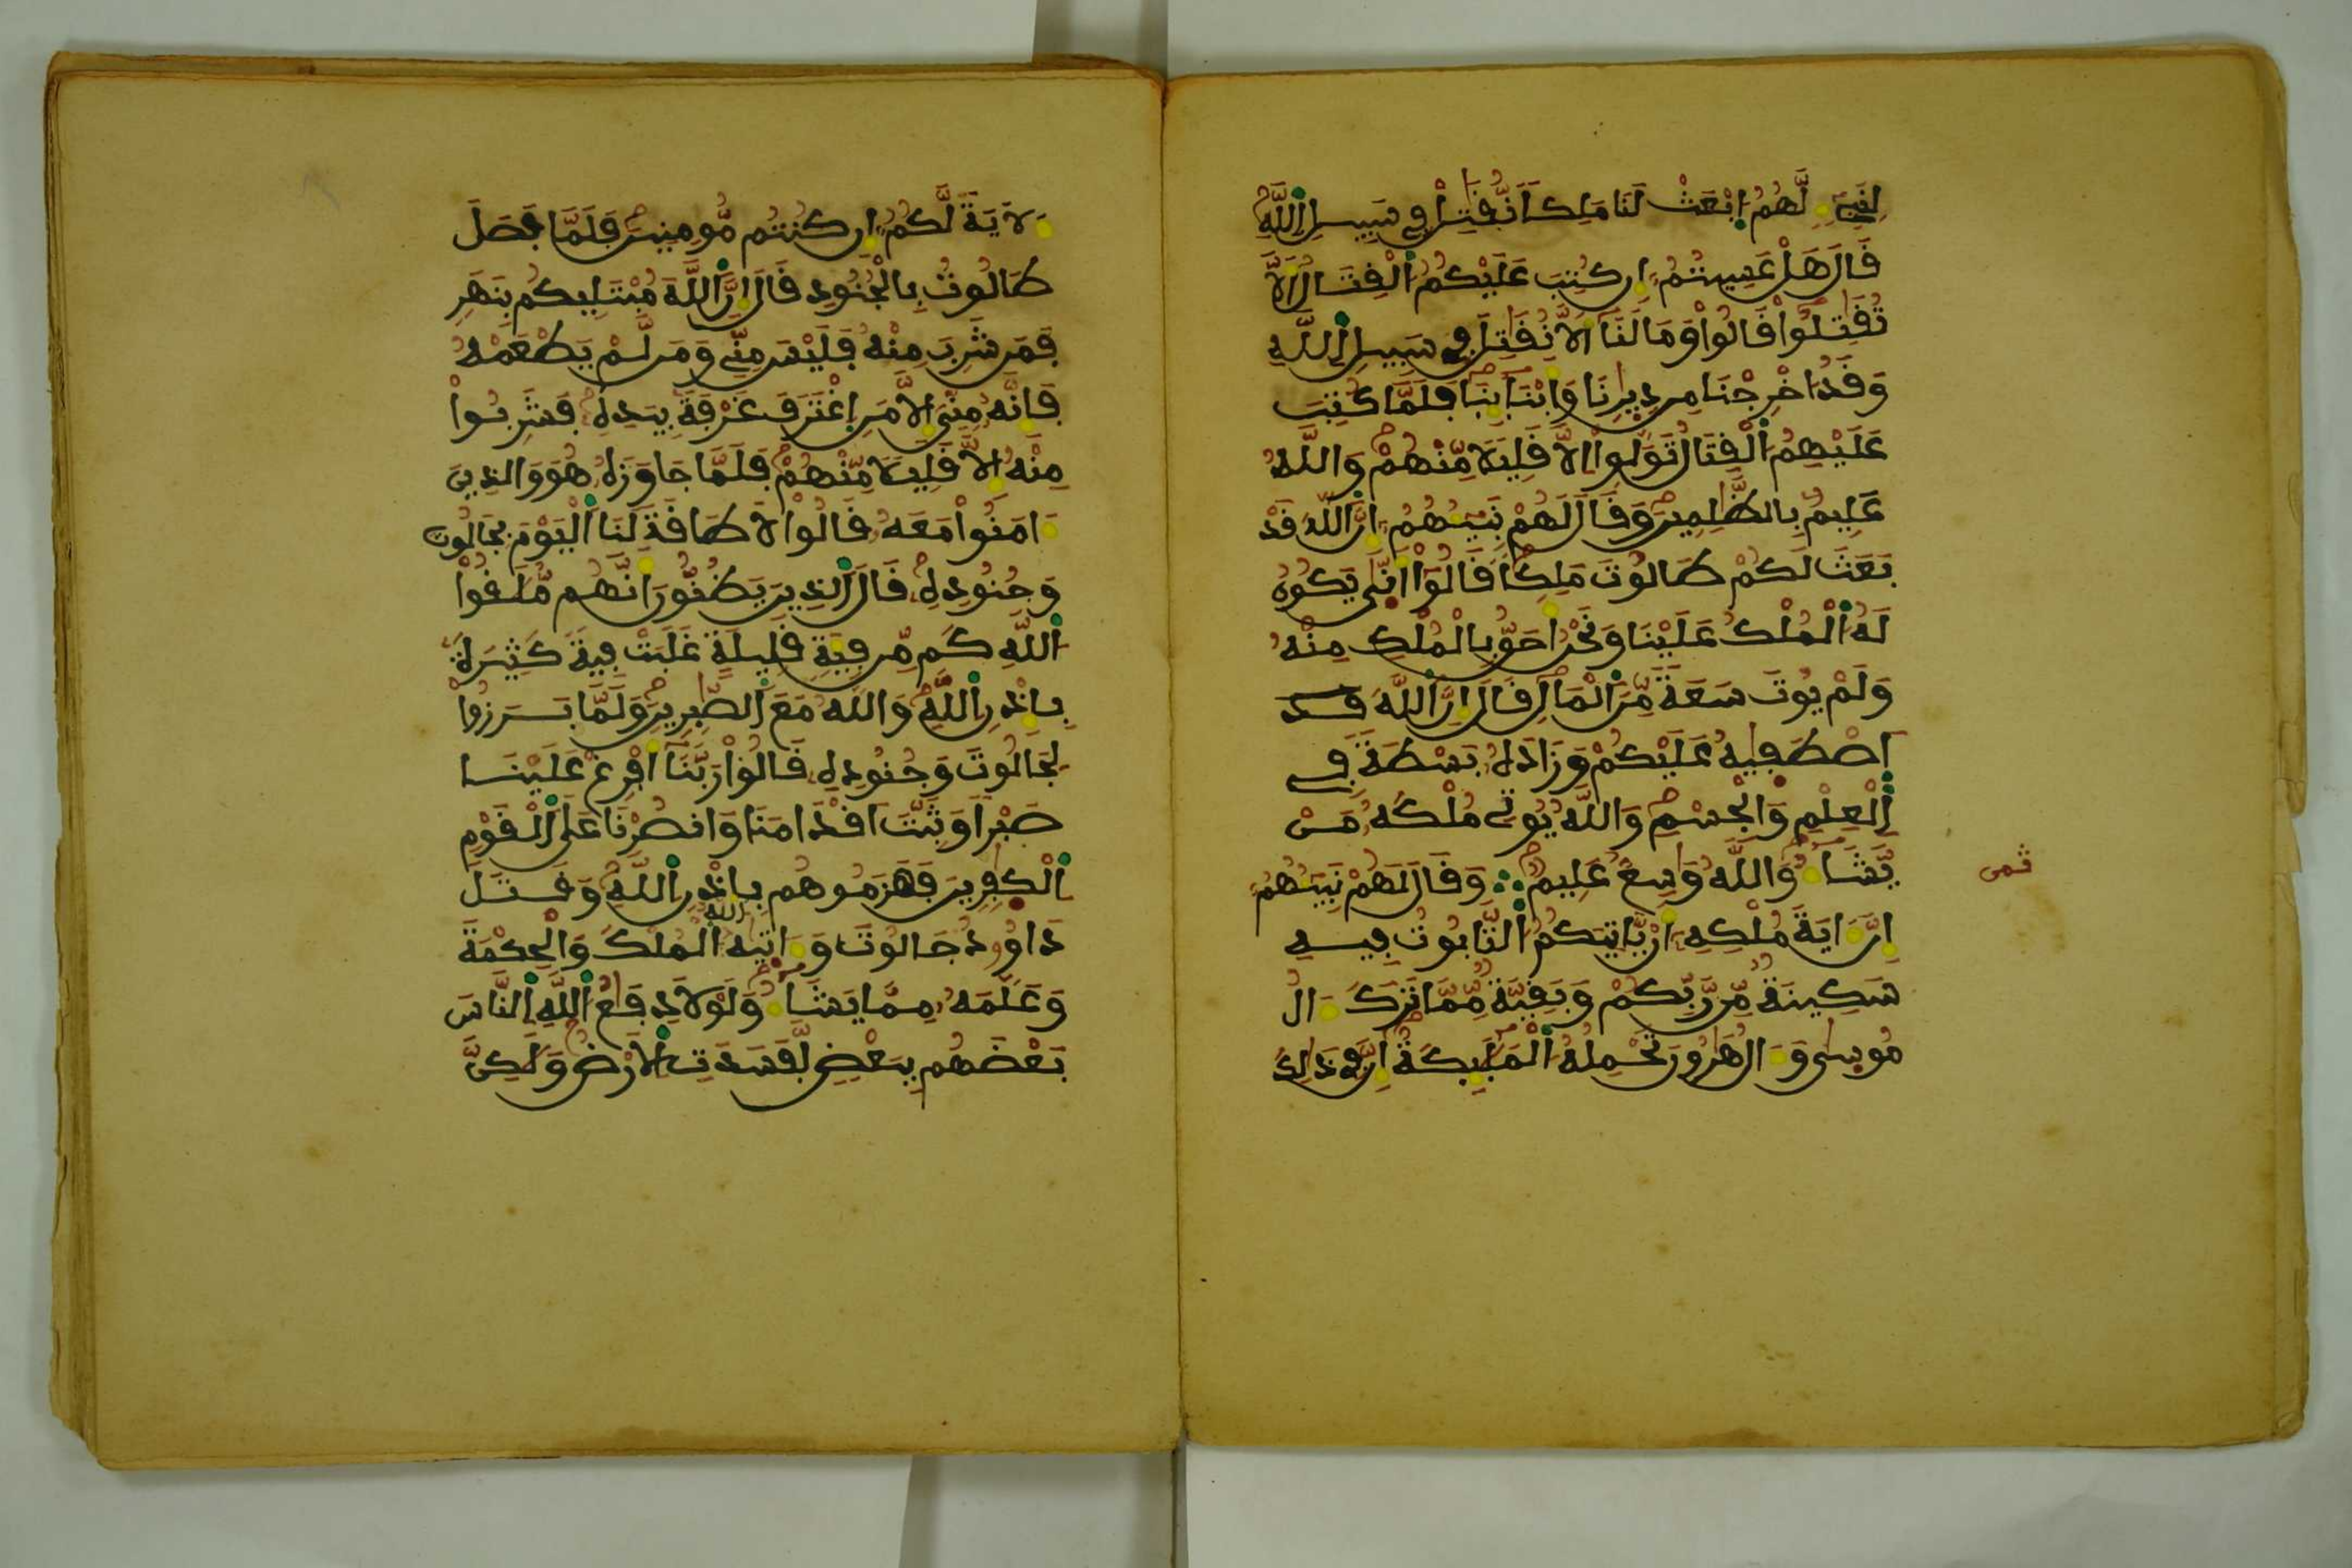 لِنَبِيٓءٍ لَّهُمُ اِ۪بْعَثْ لَنَا مَلِكاً نُّقَٰتِلْ فِي سَبِيلِ اِ۬للَّهِ
قَالَ هَلْ عَسِيتُمُۥٓ إِن كُتِبَ عَلَيْكُمُ اُ۬لْقِتَالُ أَلَّا
تُقَٰتِلُواْ قَالُواْ وَمَا لَنَآ أَلَّا نُقَٰتِلَ فِي سَبِيلِ اِ۬للَّهِ
وَقَدُ اخْرِجْنَا مِن دِيٰرِنَا وَأَبْنَآئِنَا فَلَمَّا كُتِبَ
عَلَيْهِمُ اُ۬لْقِتَالُ تَوَلَّوِاْ اِلَّا قَلِيلاً مِّنْهُمْ وَاللَّهُ
عَلِيمُۢ بِالظَّٰلِمِينَ وَقَالَ لَهُمْ نَبِيٓـُٔهُمُۥٓ إِنَّ اَ۬للَّهَ قَدْ
بَعَثَ لَكُمْ طَالُوتَ مَلِكاً قَالُوٓاْ أَنّٰي يَكُونُ
لَهُ اُ۬لْمُلْكُ عَلَيْنَا وَنَحْنُ أَحَقُّ بِالْمُلْكِ مِنْهُ
وَلَمْ يُوتَ سَعَةً مِّنَ اَ۬لْمَالِ قَالَ إِنَّ اَ۬للَّهَ
اَ۪صْطَفٰيهُ عَلَيْكُمْ وَزَادَهُۥ بَسْطَةً فِي
اِ۬لْعِلْمِ وَالْجِسْمِ وَاللَّهُ يُوتِي مُلْكَهُۥ مَنْ
يَّشَآءُ وَاللَّهُ وَٰسِعٌ عَلِيمٌ وَقَالَ لَهُمْ نَبِيٓـُٔهُمُۥٓ
ثمن
إِنَّ ءَايَةَ مُلْكِهِۦٓ أَنْ يَّاتِيَكُمُ اُ۬لتَّابُوتُ فِيهِ
سَكِينَةٌ مِّن رَّبِّكُمْ وَبَقِيَّةٌ مِّمَّا تَرَكَ ءَالُ
مُوسٰي وَءَالُ هَٰرُونَ تَحْمِلُهُ اُ۬لْمَلَٰٓئِكَةُ إِنَّ فِي ذَٰلِكَ
ءَلَايَةً لَّكُمُۥٓ إِن كُنتُم مُّومِنِينَ فَلَمَّا فَصَلَ
طَالُوتُ بِالْجُنُودِ قَالَ إِنَّ اَ۬للَّهَ مُبْتَلِيكُم بِنَهَرٍ
فَمَن شَرِبَ مِنْهُ فَلَيْسَ مِنِّي وَمَن لَّمْ يَطْعَمْهُ
فَإِنَّهُۥ مِنِّيَ إِلَّا مَنِ اِ۪غْتَرَفَ غَرْفَةَۢ بِيَدِهِۦ فَشَرِبُواْ
مِنْهُ إِلَّا قَلِيلاً مِّنْهُمْ فَلَمَّا جَاوَزَهُۥ هُوَ وَالذِينَ
ءَامَنُواْ مَعَهُۥ قَالُواْ لَا طَاقَةَ لَنَا اَ۬لْيَوْمَ بِجَالُوتَ
وَجُنُودِهِۦ قَالَ اَ۬لذِينَ يَظُنُّونَ أَنَّهُم مُّلَٰقُواْ
اُ۬للَّهِ كَم مِّن فِئَةٍ قَلِيلَةٍ غَلَبَتْ فِئَةً كَثِيرَةَۢ
بِإِذْنِ اِ۬للَّهِ وَاللَّهُ مَعَ اَ۬لصَّٰبِرِينَ وَلَمَّا بَرَزُواْ
لِجَالُوتَ وَجُنُودِهِۦ قَالُواْ رَبَّنَآ أَفْرِغْ عَلَيْنَا
صَبْراً وَثَبِّتَ اَقْدَامَنَا وَانصُرْنَا عَلَي اَ۬لْقَوْمِ
اِ۬لْكٰ۪فِرِينَ فَهَزَمُوهُم بِإِذْنِ اِ۬للَّهِ وَقَتَلَ
دَاوُۥدُ جَالُوتَ وَءَاتٰيهُ اُ۬للَّهُ اُ۬لْمُلْكَ وَالْحِكْمَةَ
وَعَلَّمَهُۥ مِمَّا يَشَآءُ وَلَوْلَا دِفَٰعُ اُ۬للَّهِ اِ۬لنَّاسَ
بَعْضَهُم بِبَعْضٍ لَّفَسَدَتِ اِ۬لَارْضُ وَلَٰكِنَّ